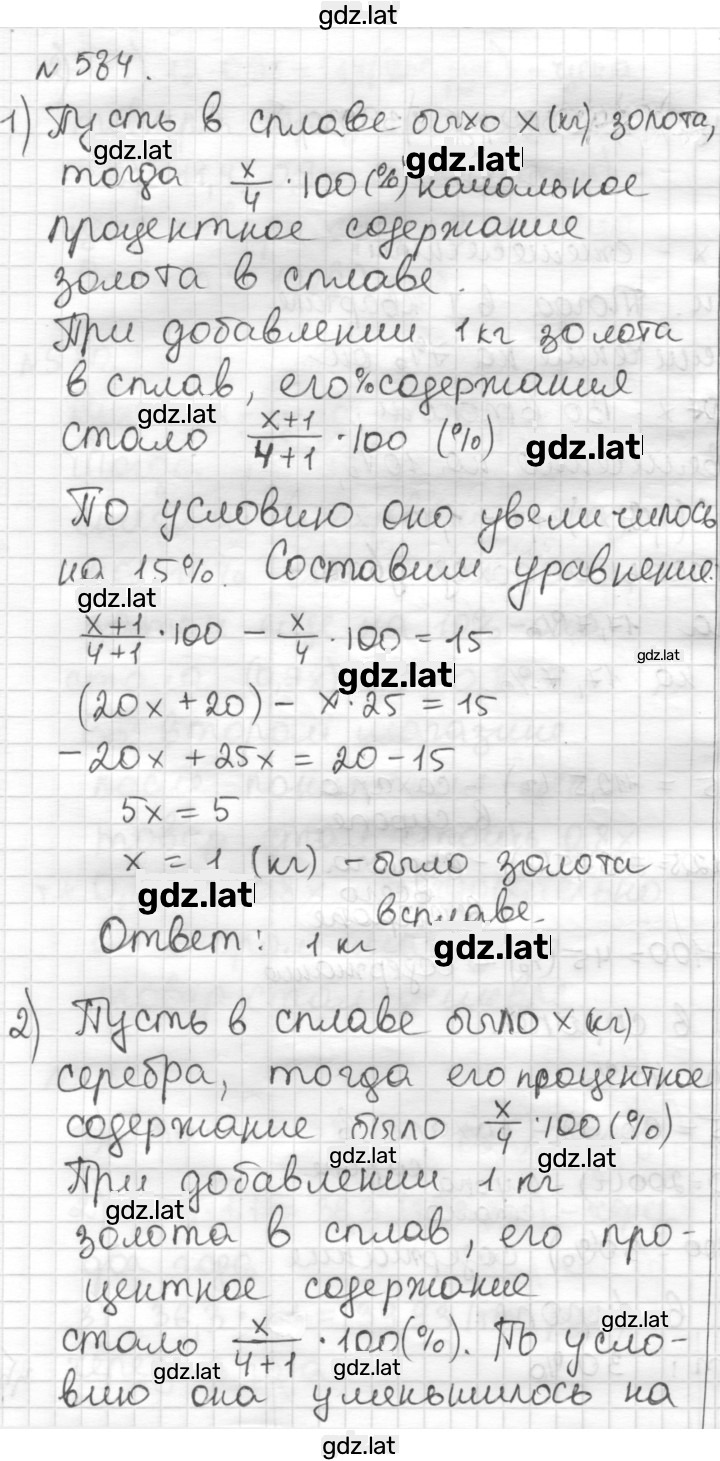 gdz.lat
№ 584.
1) Пусть в сплаве было x (кг) золота,
gdz.lat gdz.lat
тогда x/4 · 100 (%) начальное
процентное содержание
золота в сплаве.
При добавлении 1 кг золота
в сплав, его % содержания
gdz.lat
стало (x+1)/(4+1) · 100 (%) gdz.lat
По условию оно увеличилось
на 15%. Составим уравнение:
gdz.lat
(x+1)/(4+1) · 100 – x/4 · 100 = 15
gdz.lat gdz.lat
(20x + 20) – x · 25 = 15
– 20x + 25x = 20 – 15
5x = 5
x = 1 (кг) – было золота
gdz.lat в сплаве.
Ответ: 1 кг gdz.lat
2) Пусть в сплаве было x (кг)
серебра, тогда его процентное
содержание было x/4 · 100 (%)
gdz.lat gdz.lat
При добавлении 1 кг
gdz.lat
золота в сплав, его про-
центное содержание
gdz.lat
стало x/(4+1) · 100 (%). По усло-
gdz.lat gdz.lat
вию она уменьшилось на
gdz.lat